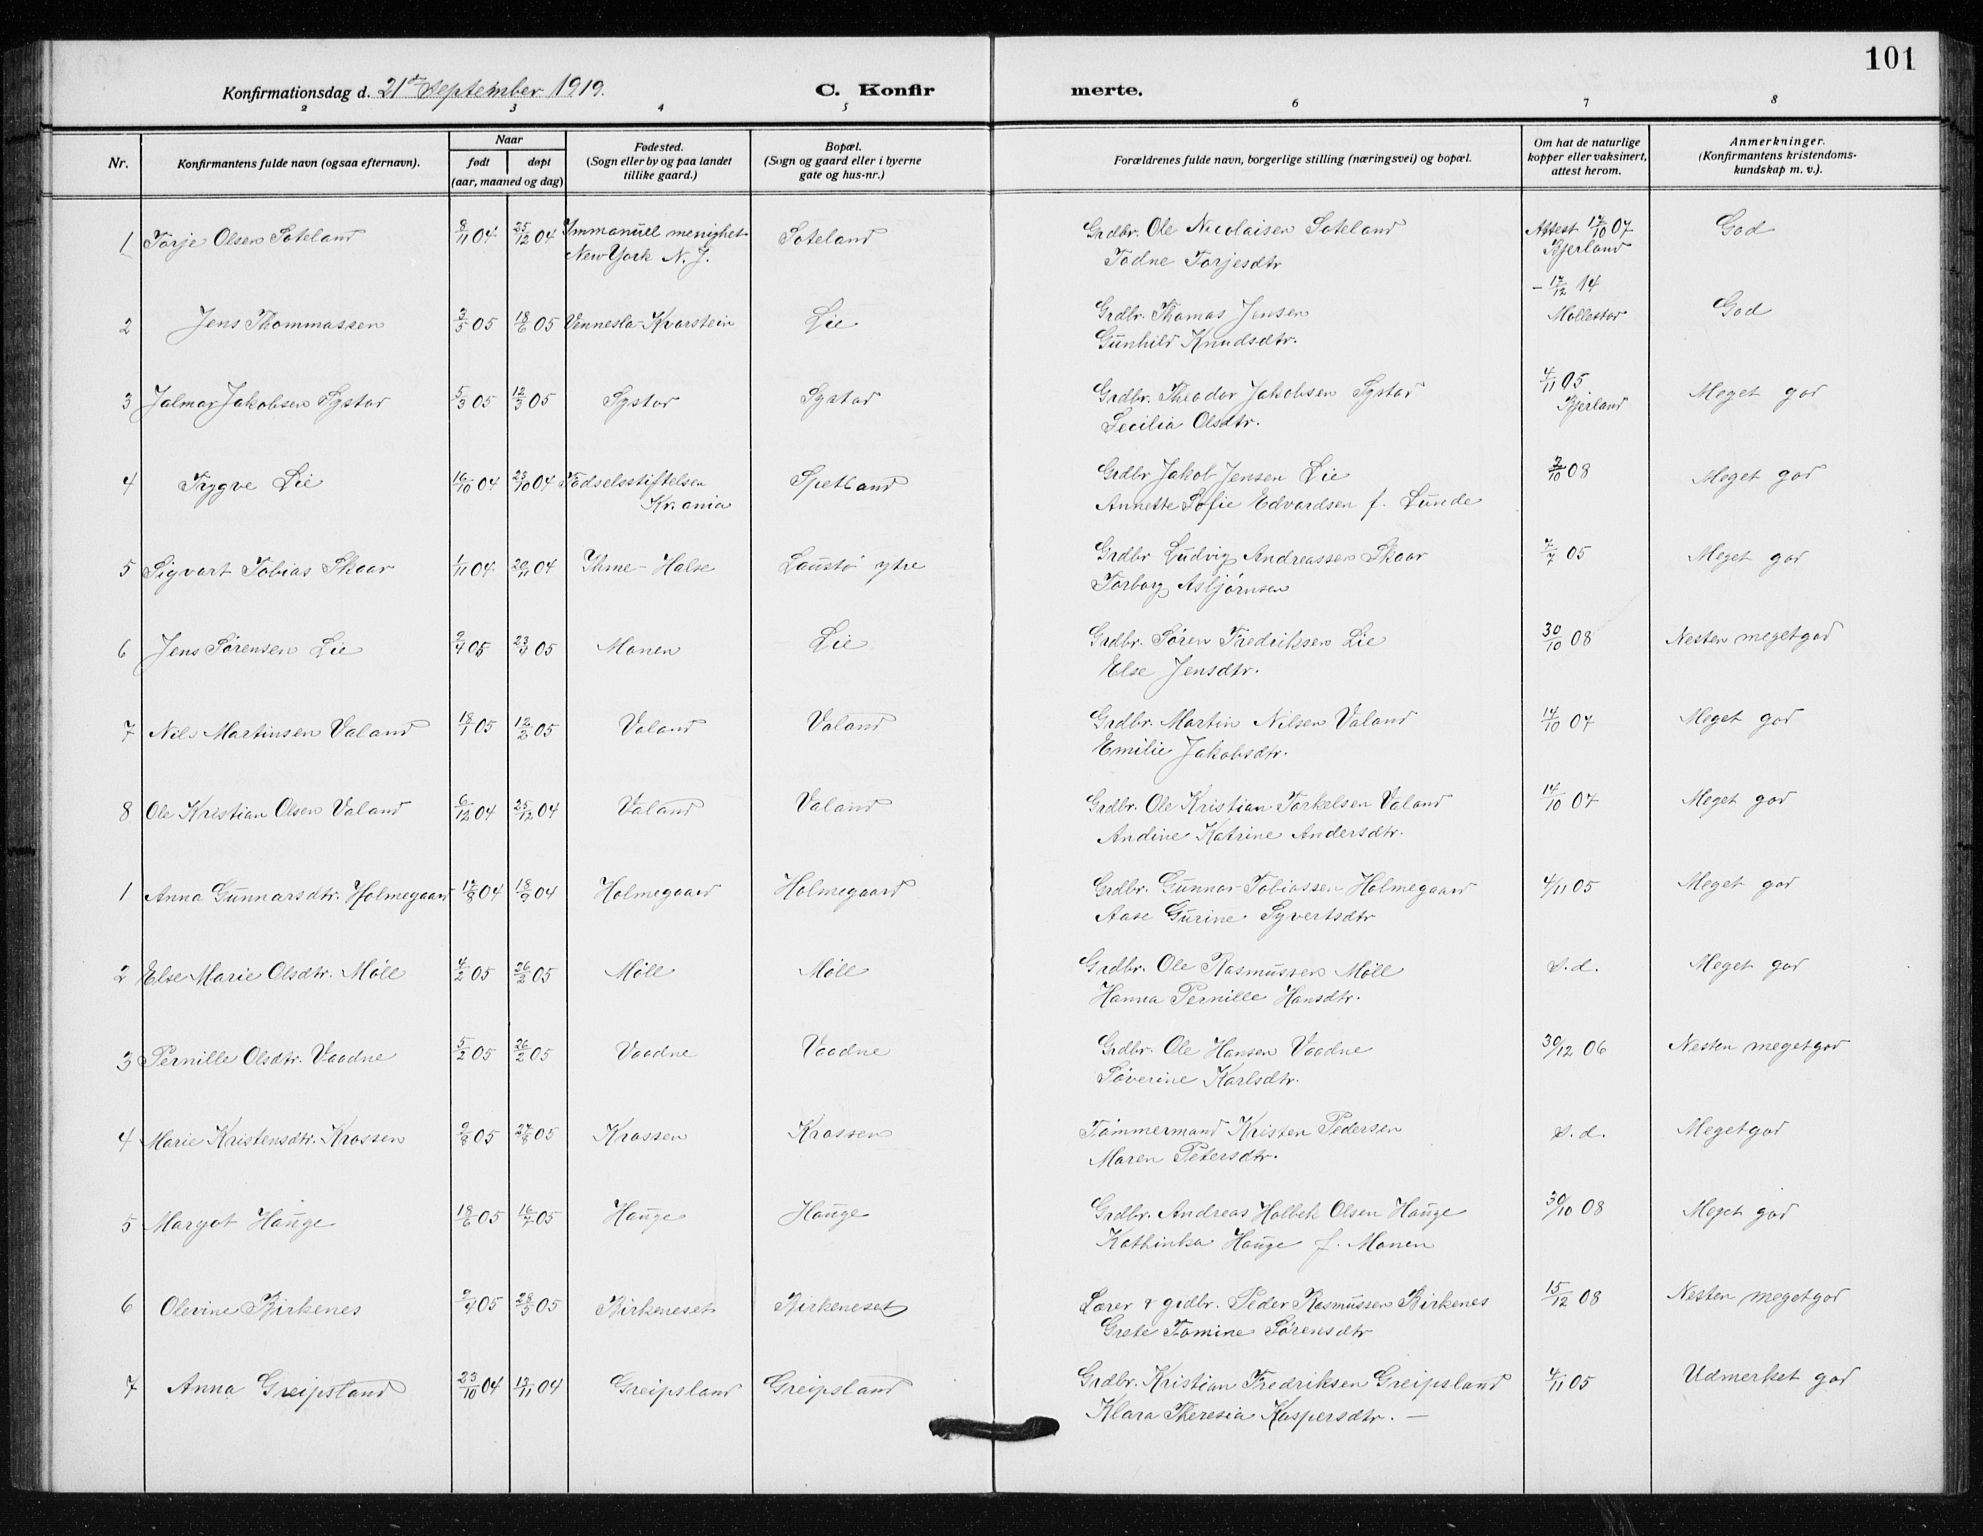 101
Konfirmationsdag d. 21de September 1919. C. Konfirmerte.
2 3 4 5 6 7 8
Nr. Konfirmantens fulde navn (ogsaa efternavn). Naar født døpt (aar, maaned og dag) Fødested. (Sogn eller by og paa landet tillike gaard.) Bopæl. (Sogn og gaard eller i byerne gate og hus-nr.) Forældrenes fulde navn, borgerlige stilling (næringsvei) og bopæl. Om hat de naturlige kopper eller vaksinert, attest herom. Anmerkninger. (Konfirmantens kristendoms-kundskap m. v.).
1 Torje Olsen Soteland 8/11 04 25/12 04 Immanuel menighet Soteland Grdbr. Ole Nicolaisen Soteland Attest 17/10 07 God
New York N. J. Todne Torjesdtr Bjerland
2 Jens Thommassen 3/5 05 18/6 05 Vennesla-Kvarstein Lie Grdbr. Thomas Jensen - 17/12 14 God
Gunhild Knudsdtr. Mollestor
3 Jalmar Jakobsen Systar 5/3 05 12/3 05 Systar Systar Grdbr. Theodor Jakobsen Systar 4/11 05 Meget god
Secilia Olsdtr. Bjerland
4 Trygve Lie 16/10 04 23/10 04 Fødselsstiftelsen Spetland Grdbr Jakob Jensen Lie 3/10 08 Meget god
Kr.ania Annette Sofie Edvardsen f. Lunde
5 Sigvart Tobias Skaar 1/11 04 20/11 04 Øhme-Halse Laustø ytre Grdbr Ludvig Andreassen Skaar 7/7 05 Meget god
Torborg Asbjørnsen
6 Jens Sørensen Lie 2/4 05 23/4 05 Monen Lie Grdbr. Søren Fredriksen Lie 30/10 08 Nesten meget god
Else Jensdtr.
7 Nils Martinsen Valand 18/1 05 12/2 05 Valand Valand Grdbr. Martin Nilsen Valand 14/10 07 Meget god
Emilie Jakobsdtr.
8 Ole Kristian Olsen Valand 6/12 04 25/12 04 Valand Valand Grdbr. Ole Kristian Torkelsen Valand 14/10 07 Meget god
Andine Katrine Andersdtr.
1 Anna Gunnarsdtr. Holmegaard 17/8 04 18/9 04 Holmegaard Holmegaard Grdbr. Gunnar Tobiassen Holmegaard 4/11 05 Meget god
Aase Gurine Syvertsdtr
2 Else Marie Olsdtr. Møll 4/2 05 26/2 05 Møll Møll Grdbr. Ole Rasmussen Møll s.d. Meget god
Hanna Pernille Hansdtr.
3 Pernille Olsdtr. Vaadne 5/2 05 26/2 05 Vaadne Vaadne Grdbr. Ole Hansen Vaadne 30/12 06 Nesten meget god
Søverine Karlsdtr.
4 Marie Kristensdtr. Krossen 9/8 05 27/8 05 Krossen Krossen Tømmermand Kristen Pedersen s.d. Meget god
Maren Petersdtr.
5 Margot Hauge 18/6 05 16/7 05 Hauge Hauge Grdbr. Andreas Holbek Olsen Hauge 30/10 08 Meget god
Kathinka Hauge f. Monen
6 Olevine Birkenes 9/4 05 28/5 05 Birkeneset Birkeneset Lærer & grdbr. Peder Rasmussen Birkenes 15/12 08 Nesten meget god
Grete Tomine Sørensdtr
7 Anna Greipsland 23/10 04 13/11 04 Greipsland Greipsland Grdbr. Kristian Fredriksen Greipsland 4/11 05 Udmerket god
Klara Theresia Kaspersdtr. –